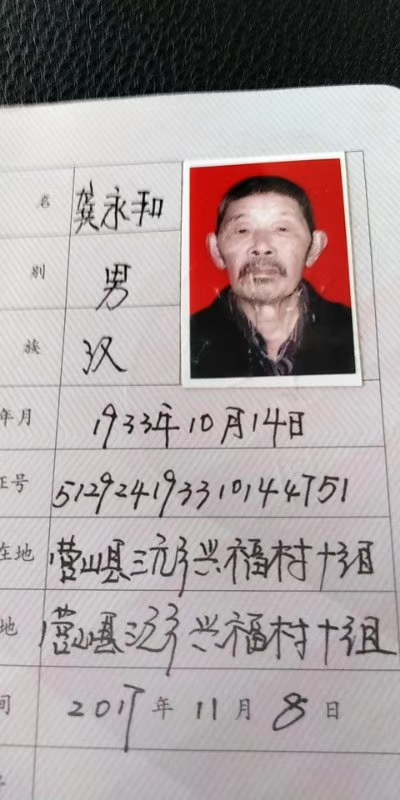 名 龚永和
别 男
族 汉
年月 1933年10月14日
证号 512924193310144751
在地 营山县三元乡兴福村十组
地 营山县三元乡兴福村十组
间 2017年11月8日